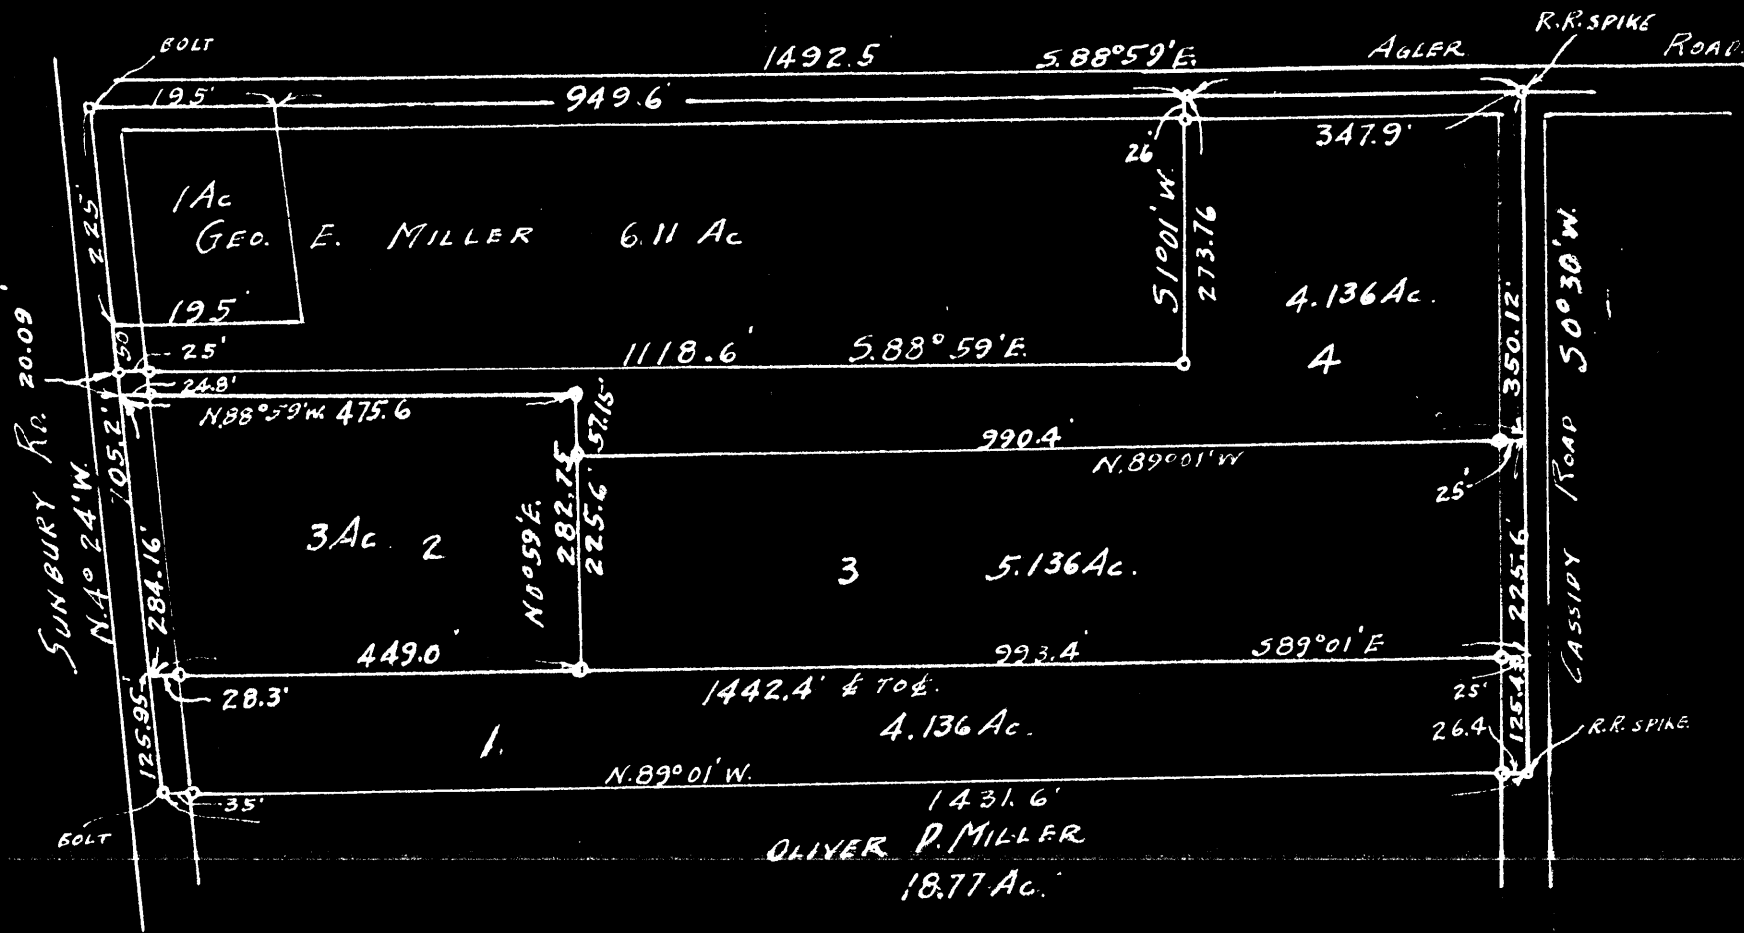 BOLT
1492.5
S.88°59'E.
AGLER
R.R. SPIKE
ROAD
195'
949.6'
347.9'
26'
225'
1 Ac
GEO. E. MILLER
6.11 Ac
S1°01'W.
273.76
195'
50'
25'
1118.6'
S.88°59'E.
4.136 Ac.
4
350.12'
S0°30'W.
20.09'
24.8'
N.88°59'W. 475.6
57.15'
990.4'
N.89°01'W
25'
SUNBURY RD.
N.4°24'W.
105.2'
284.16'
3 Ac.
2
N0°59'E.
282.75
225.6'
3
5.136 Ac.
225.6'
CASSIDY ROAD
449.0'
993.4'
S89°01'E
28.3'
1442.4' ℄ TO ℄.
25'
125.95'
1.
4.136 Ac.
26.4
125.43
R.R. SPIKE
N.89°01'W.
35'
1431.6'
BOLT
OLIVER D. MILLER
18.77 Ac.